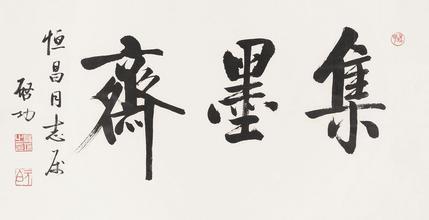 集墨齋
恒昌同志属
啟功